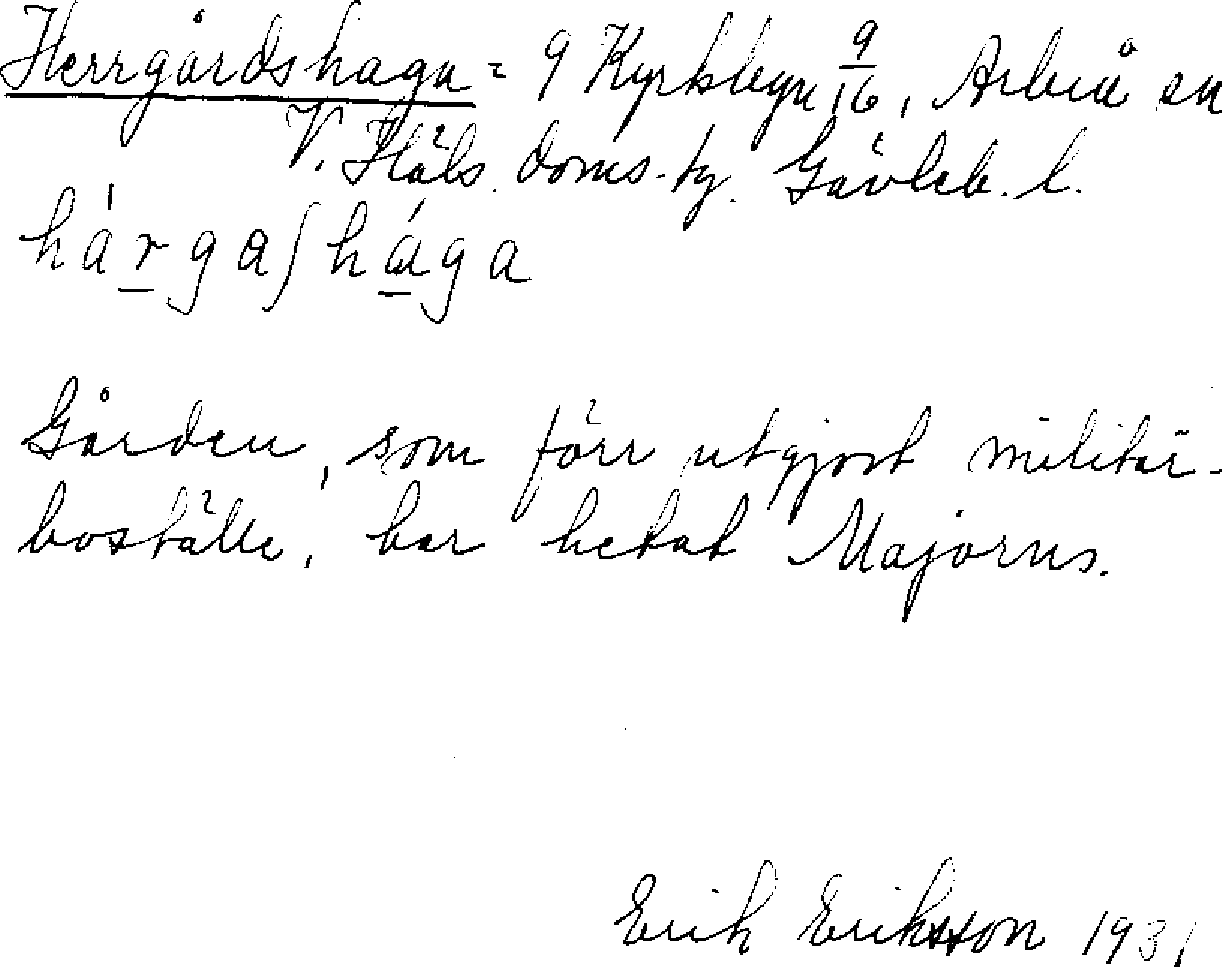 Herrgårdshaga = 9 Kyrkbyn 9/16, Arbrå sn
V. Häls. doms. tg. Gävleb. l.
hárgaʃhága
Gården, som förr utgjort militär-
boställe, har hetat Majorns.
Erik Eriksson 1931